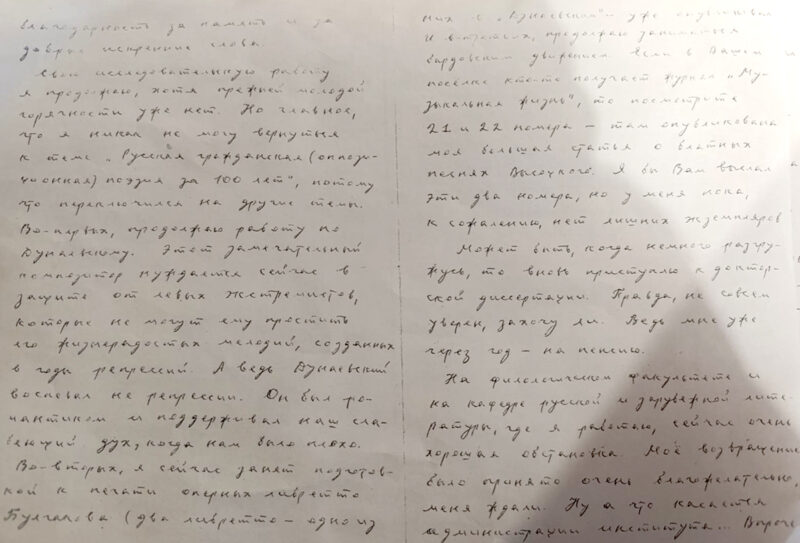 благодарность за память и за
добрые искренние слова.
Свою исследовательскую работу
я продолжаю, хотя прежней молодой
горячности уже нет. Но главное,
что я никак не могу вернуться
к теме „Русская гражданская (оппози-
ционная) поэзия за 100 лет“, потому
что переключился на другие темы.
Во-первых, продолжаю работу по
Дунаевскому. Этот замечательный
композитор нуждается сейчас в
защите от левых экстремистов,
которые не могут ему простить
его жизнерадостых мелодий, созданных
в годы репрессий. А ведь Дунаевский
воспевал не репрессии. Он был ро-
мантиком и поддерживал наш сла-
беющий дух, когда нам было плохо.
Во-вторых, я сейчас занят подготов-
кой к печати оперных либретто
Булгакова (два либретто – одно из
них с „Дунаевский“ – уже опубликовал
И в-третьих, продолжаю заниматься
бардовским движением. Если в Вашем
посёлке кто-то получает журнал „Му-
зыкальная жизнь“, то посмотрите
21 и 22 номера – там опубликована
моя большая статья о блатных
песнях Высоцкого. Я бы Вам выслал
эти два номера, но у меня пока,
к сожалению, нет лишних экземпляров
Может быть, когда немного разгру-
жусь, то вновь приступлю к доктор-
ской диссертации. Правда, не совсем
уверен, захочу ли. Ведь мне уже
через год – на пенсию.
На филологическом факультете и
на кафедре русской и зарубежной лите-
ратуры, где я работаю, сейчас очень
хорошая обстановка. Моё возвращение
было принято очень благожелательно,
меня ждали. Ну а что касается
администрации института... Впроче